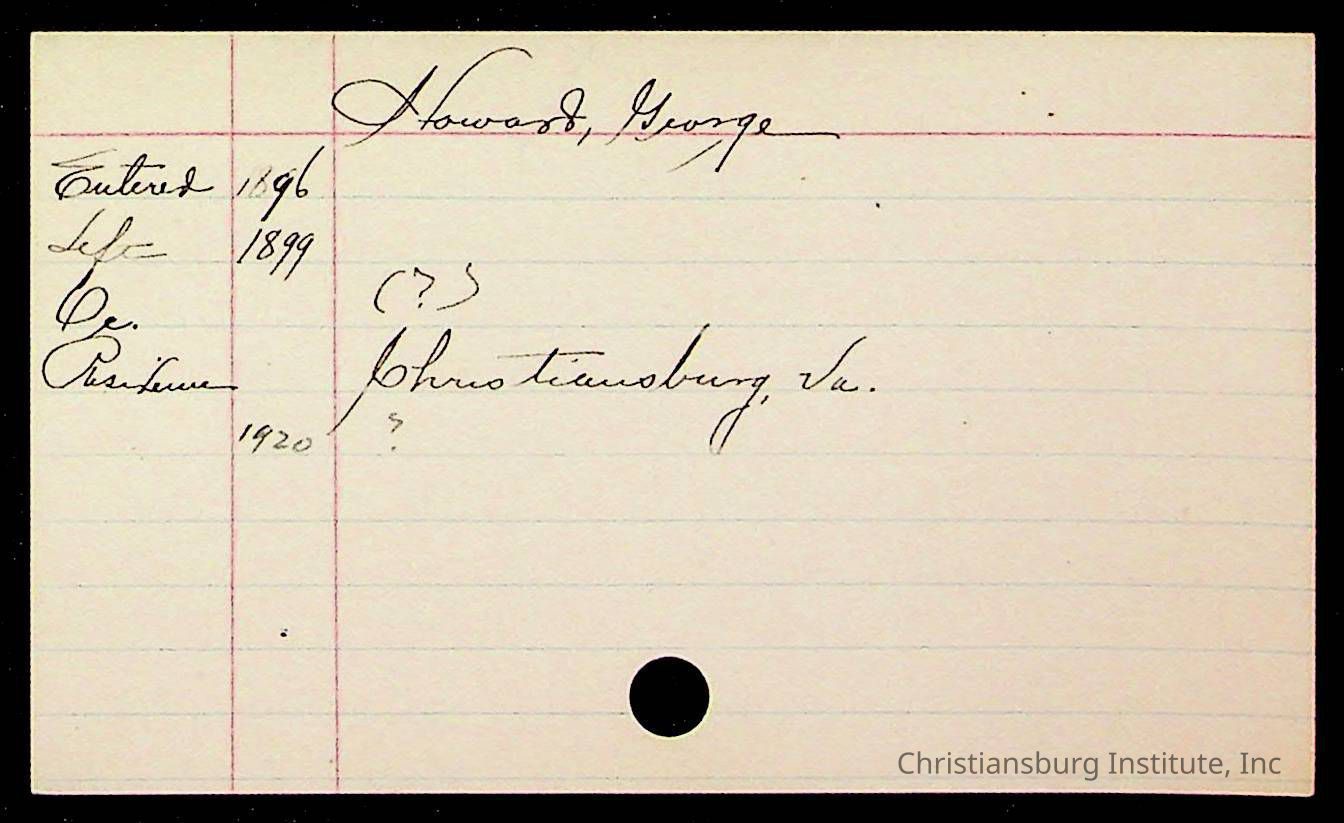 Howard, George
Entered 1896
Left 1899
Oc. (?)
Residence Christiansburg, Va.
1920 ?
Christiansburg Institute, Inc